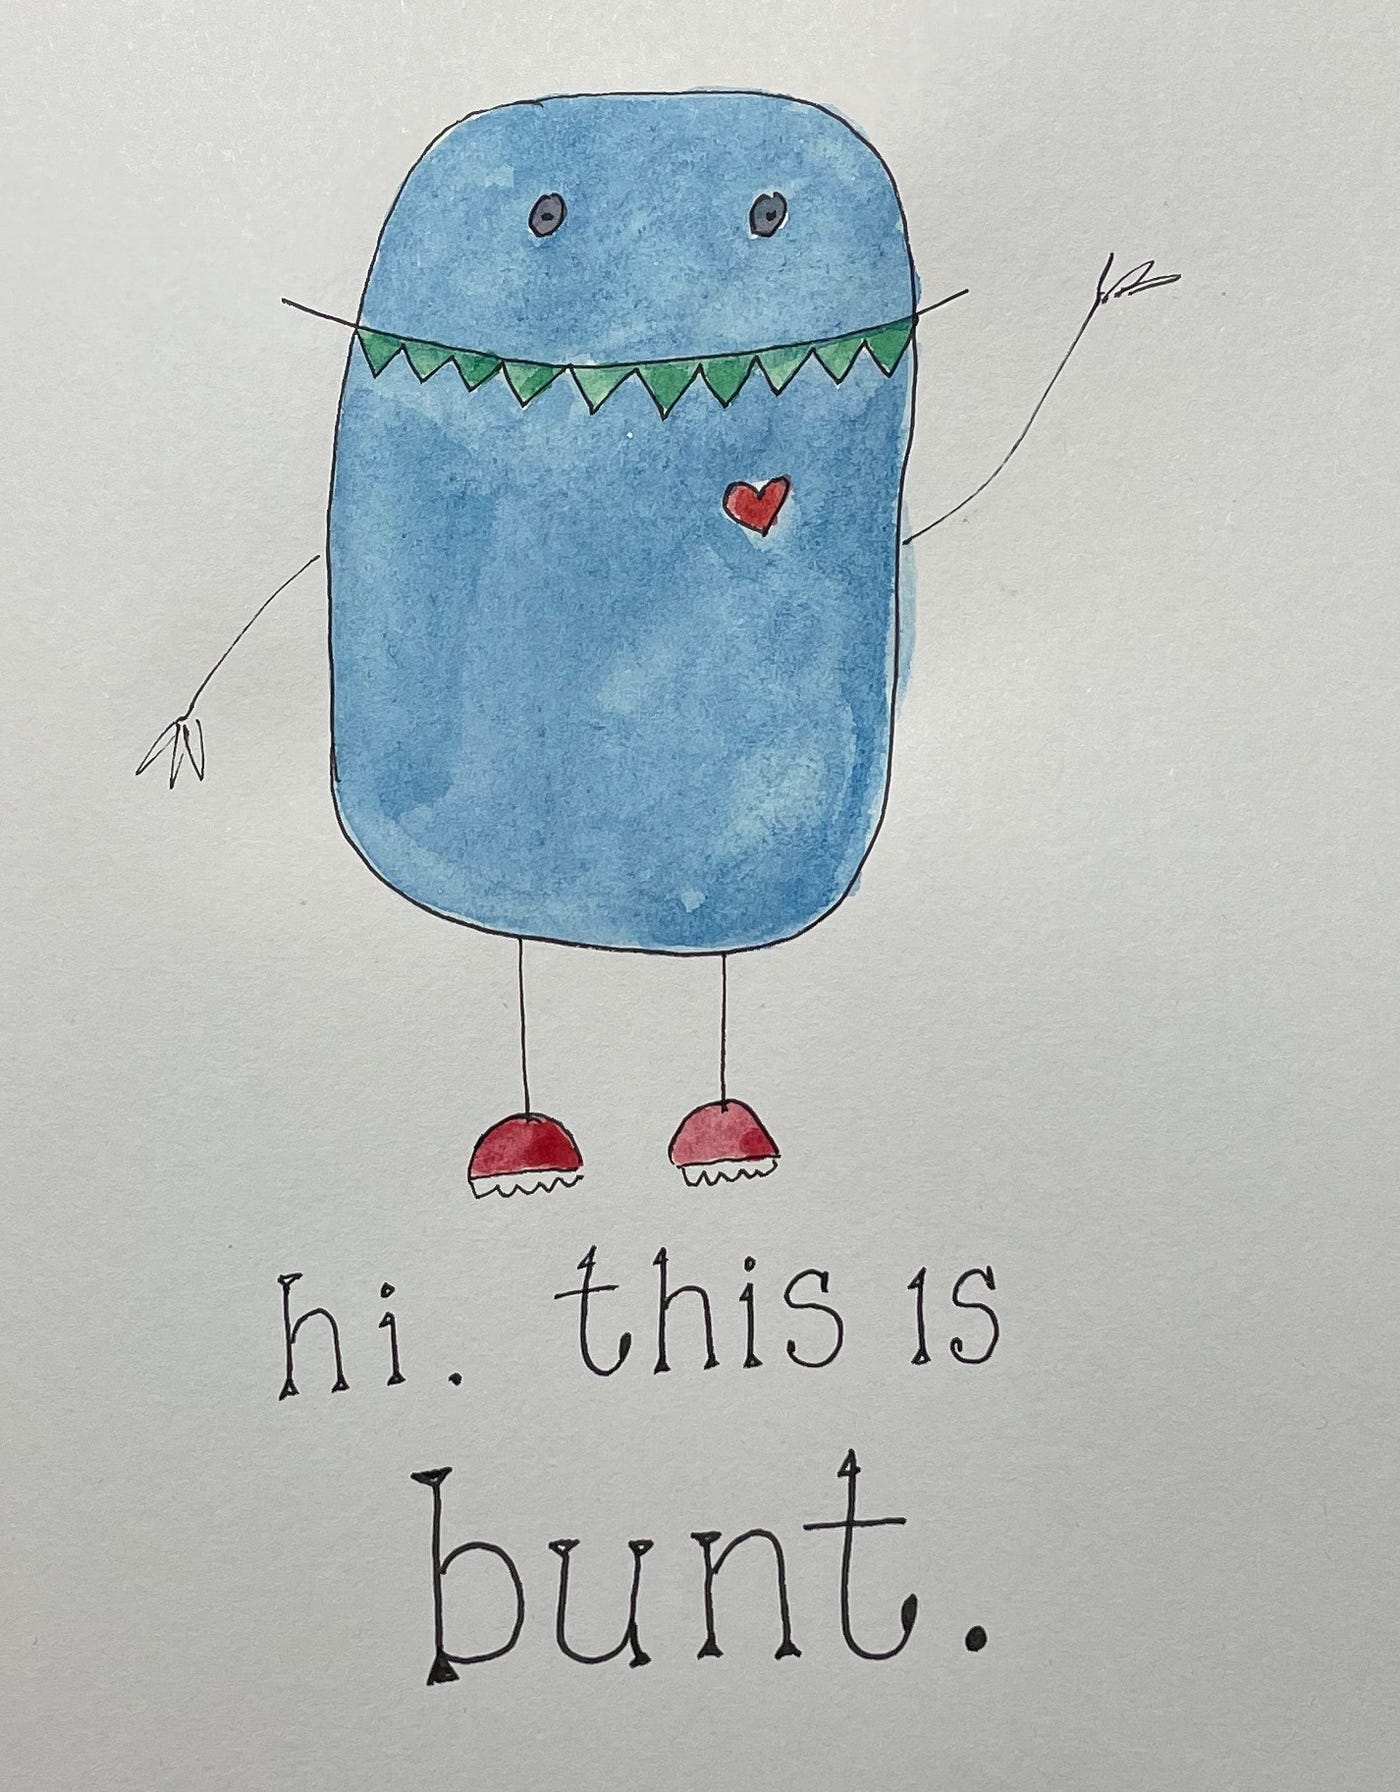 hi. this is
bunt.